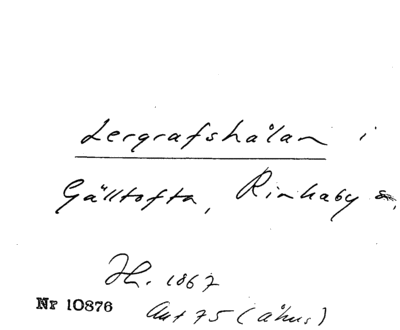 Lergrafshålan i
Gälltofta, Rinkaby s.
Jh. 1867
Nr 10876
Ant 75 (Åhus)